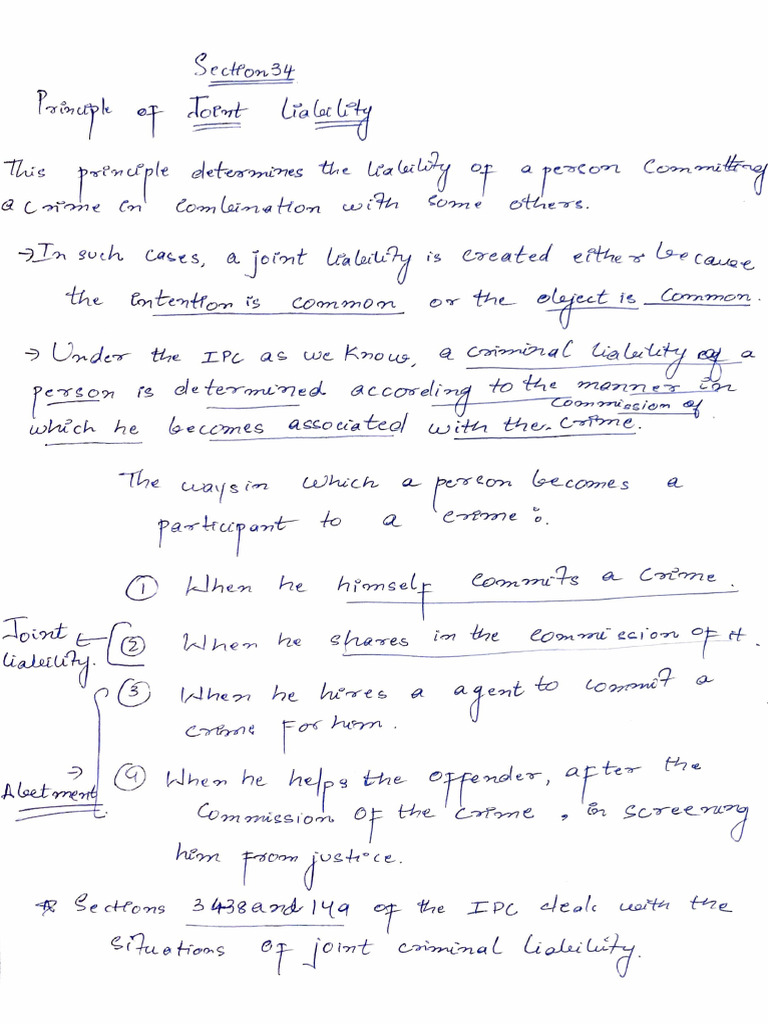 Section 34
Principle of Joint liability
This principle determines the liability of a person Committing
a crime in combination with some others.
→ In such cases, a joint liability is created either because
the intention is common or the object is common.
→ Under the IPC as we know, a criminal liability of a
person is determined according to the manner in
commission of
which he becomes associated with the crime.
The ways in which a person becomes a
participant to a crime:
① When he himself commits a crime.
Joint liability. ② When he shares in the commission of it.
③ When he hires a agent to commit a
crime for him.
Abetment → ④ When he helps the offender, after the
Commission of the crime, in screening
him from justice.
* Sections 34 38 and 149 of the IPC deal with the
situations of joint criminal liability.